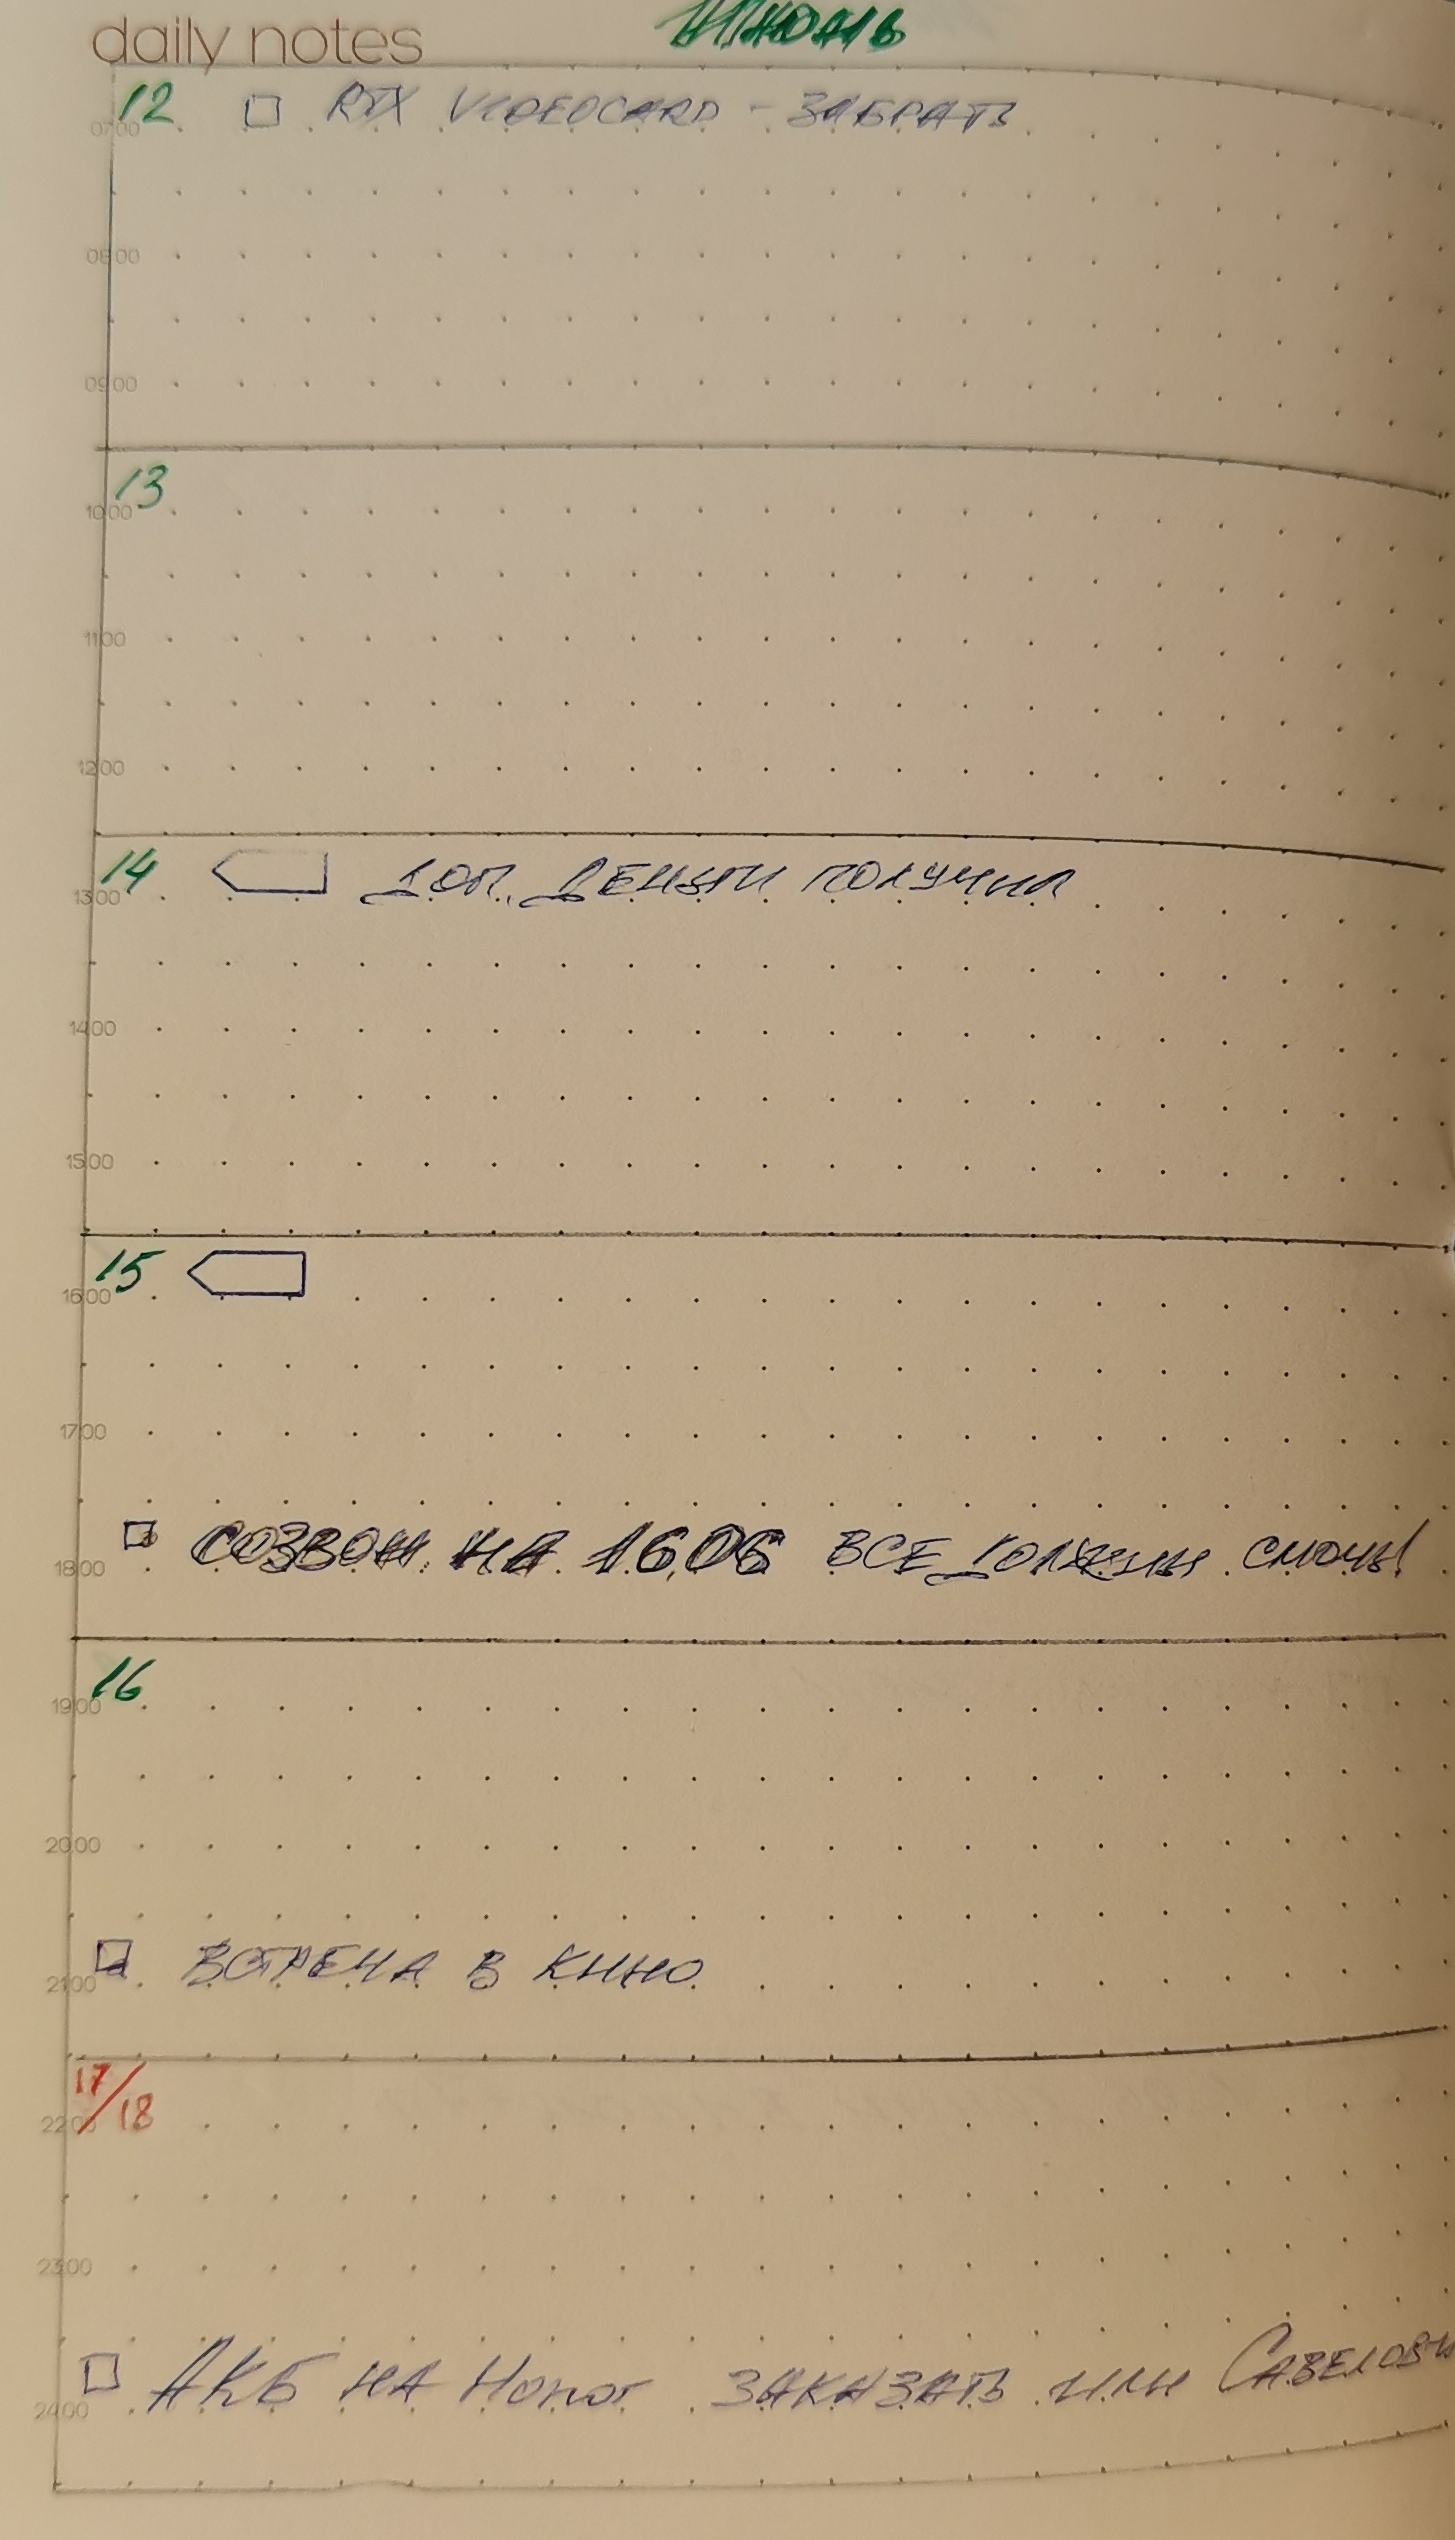 daily notes
12 RTX VIDEOCARD - ЗАБРАТЬ
07:00
08:00
09:00
13
10:00
11:00
12:00
14 ДОП. ДЕНЬГИ ПОЛУЧИЛ
13:00
14:00
15:00
15
16:00
17:00
СОЗВОН НА 16.06 ВСЕ ДОЛЖНЫ СМОЧЬ!
18:00
16
19:00
20:00
ВСТРЕЧА В КИНО
21:00
17/18
22:00
23:00
АКБ НА Honor ЗАКАЗАТЬ ИЛИ
24:00